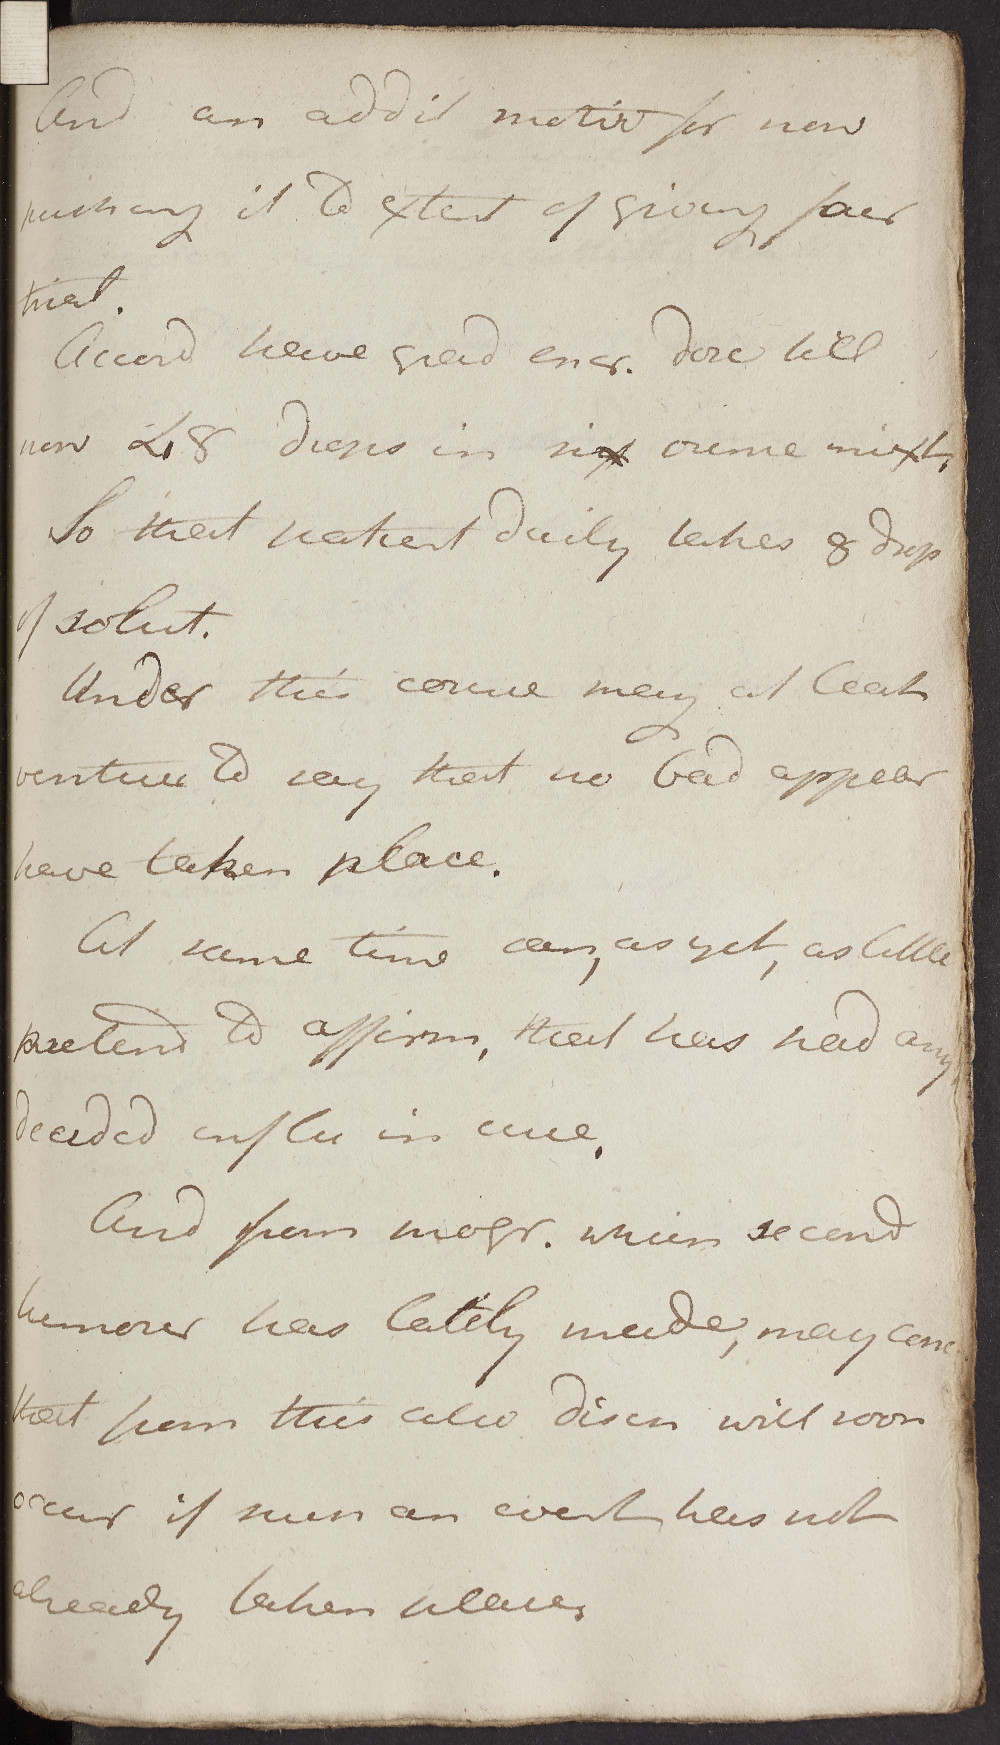 And an addit motiv for now
pushing it to extent of giving fair
trial.
Accord have grad encr. dose till
now 48 drops in six ounce mixt,
So that patient daily takes 8 drop
of solut.
Under this course may at least
venture to say that no bad appear
have taken place.
At same time can, as yet, as little
pretend to affirm, that has had any
decided influ in cure.
And from progr. which second
humour has lately made, may conc
that from this also disch will soon
occur if such an event has not
already taken place,